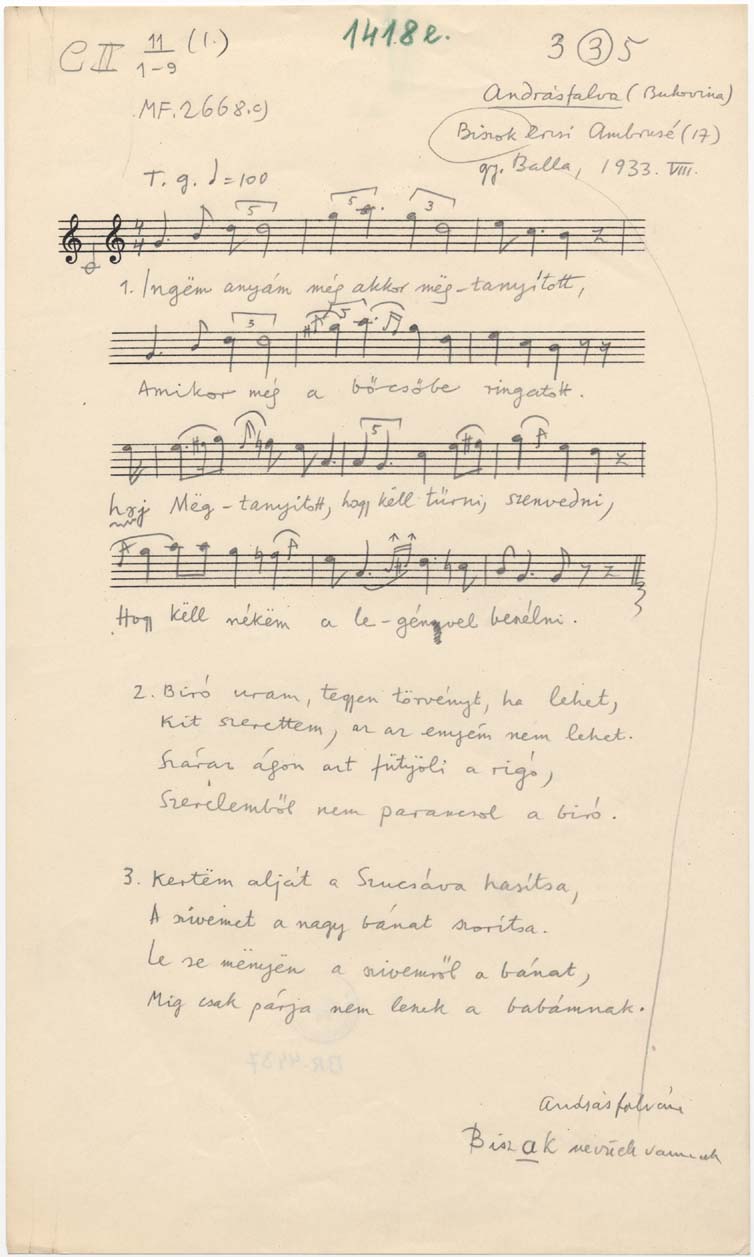 C II 11/1-9 (1.)
1418 e.
3 3 5
MF. 2668.c)
Andrásfalva (Bukovina)
Biszok Ambrusé (17)
gy. Balla, 1933. VIII.
T. g. = 100
4/4 5 5 3
1. Ingëm anyám még akkor mëg-tanyított,
3 5
Amikor még a bőcsőbe ringatott.
5
haj Mëg-tanyított, hogy këll tűrni, szenvedni,
Hogy këll nékëm a le-génnyel benélni.
2. Biró uram, tegyen törvényt, ha lehet,
Kit szerettem, az az enyém nem lehet.
Száraz ágon azt fütyöli a rigó,
Szerelemből nem parancsol a biró.
3. Kertëm alját a Szucsáva hasítsa,
A szivemet a nagy bánat szorítsa.
Le se mënjën a szivemről a bánat,
Mig csak párja nem leszek a babámnak.
BR. 4437
Andrásfalván
Biszak nevűek vannak